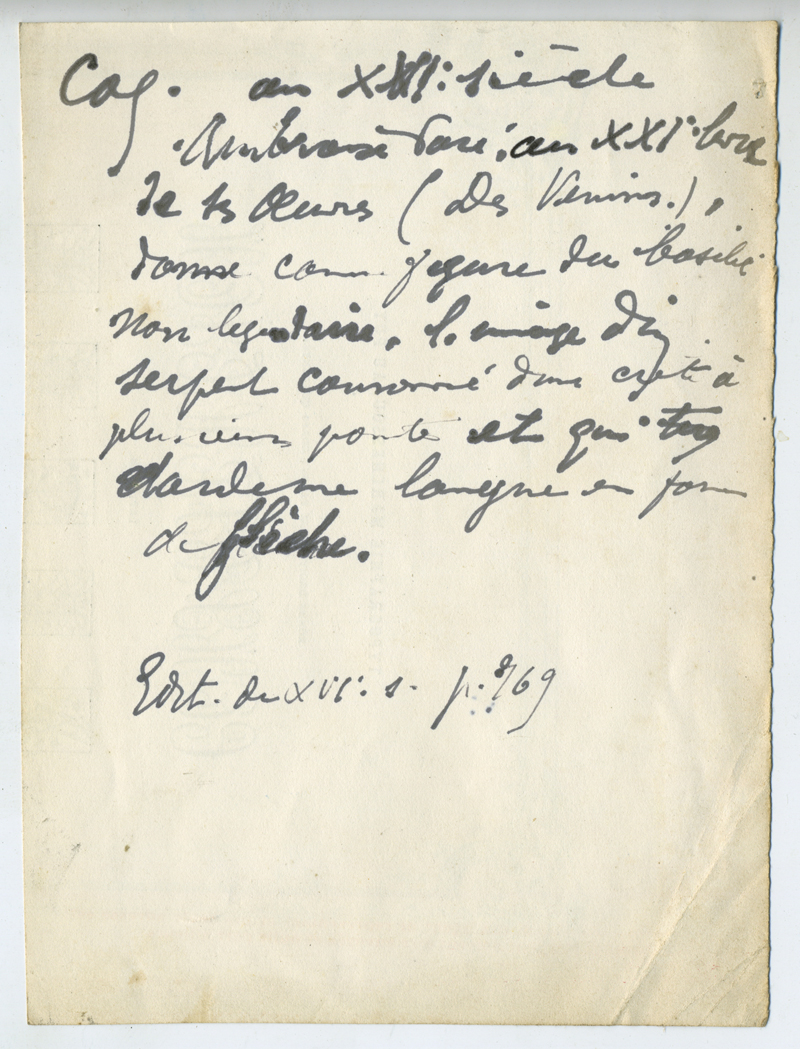 Coq. au XVIe: siècle
Ambroise Paré, au XXIe: livre
de ses Œuvres (Des Venins.),
donne comme figure du basilic
non légendaire, l'image d'un
serpent couronné d'une crête à
plusieurs pointes et qui
darde une langue en forme
de flèche.
Edit. du XVIe: s. p.